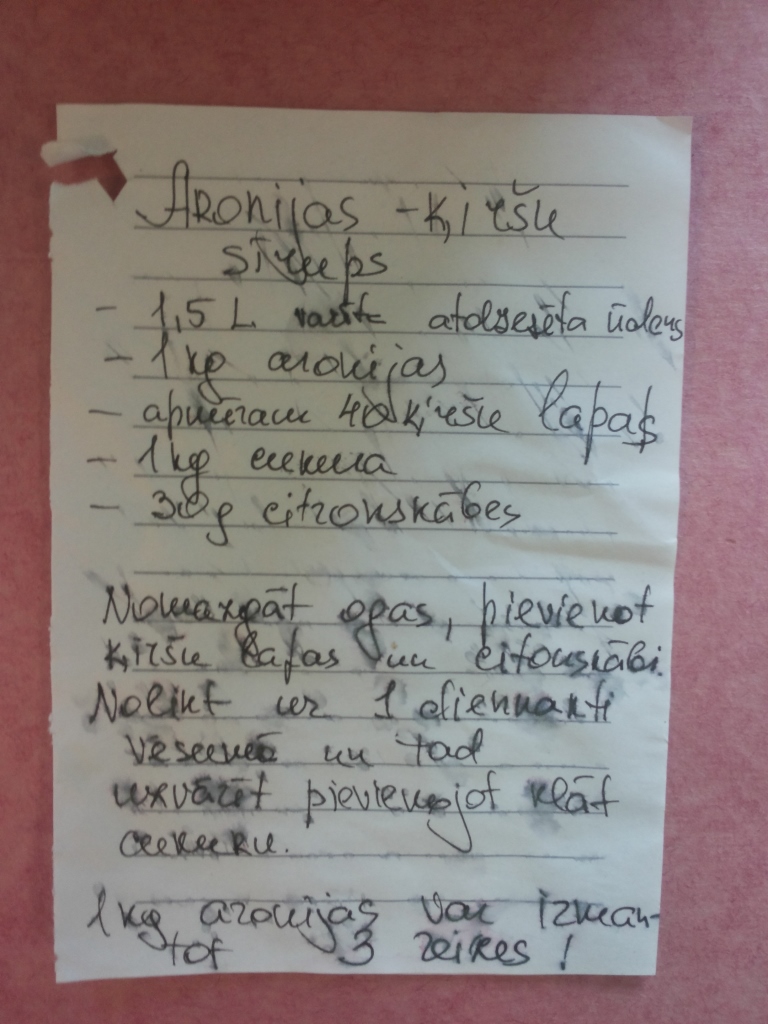 Aronijas - ķiršu
sīrups
- 1,5 L varīta atdzesēta ūdens
- 1 kg aronijas
- apmēram 40 ķiršu lapas
- 1 kg cukura
- 30g citronskābes
Nomazgāt ogas, pievienot
ķiršu lapas un citonskābi.
Nolikt uz 1 diennakti
vēsumā un tad
uzvārīt pievienojot klāt
cukuru.
1 kg aronijas var izman-
tot 3 reizes!